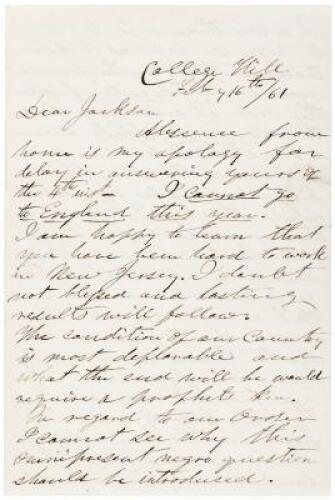 College Hill
Feby 16th/61
Dear Jackson
Abscence from
home is my apology for
delay in answering yours of
the 4th inst I cannot go
to England this year.
I am happy to learn that
you have been hard to work
in New Jersey. I doubt
not blessed and lasting
results will follow.
The condition of our Country
is most deplorable and
what the end will be would
require a prophets
In regard to our Order
I cannot see why this
omnipresent negro question
should be introduced.